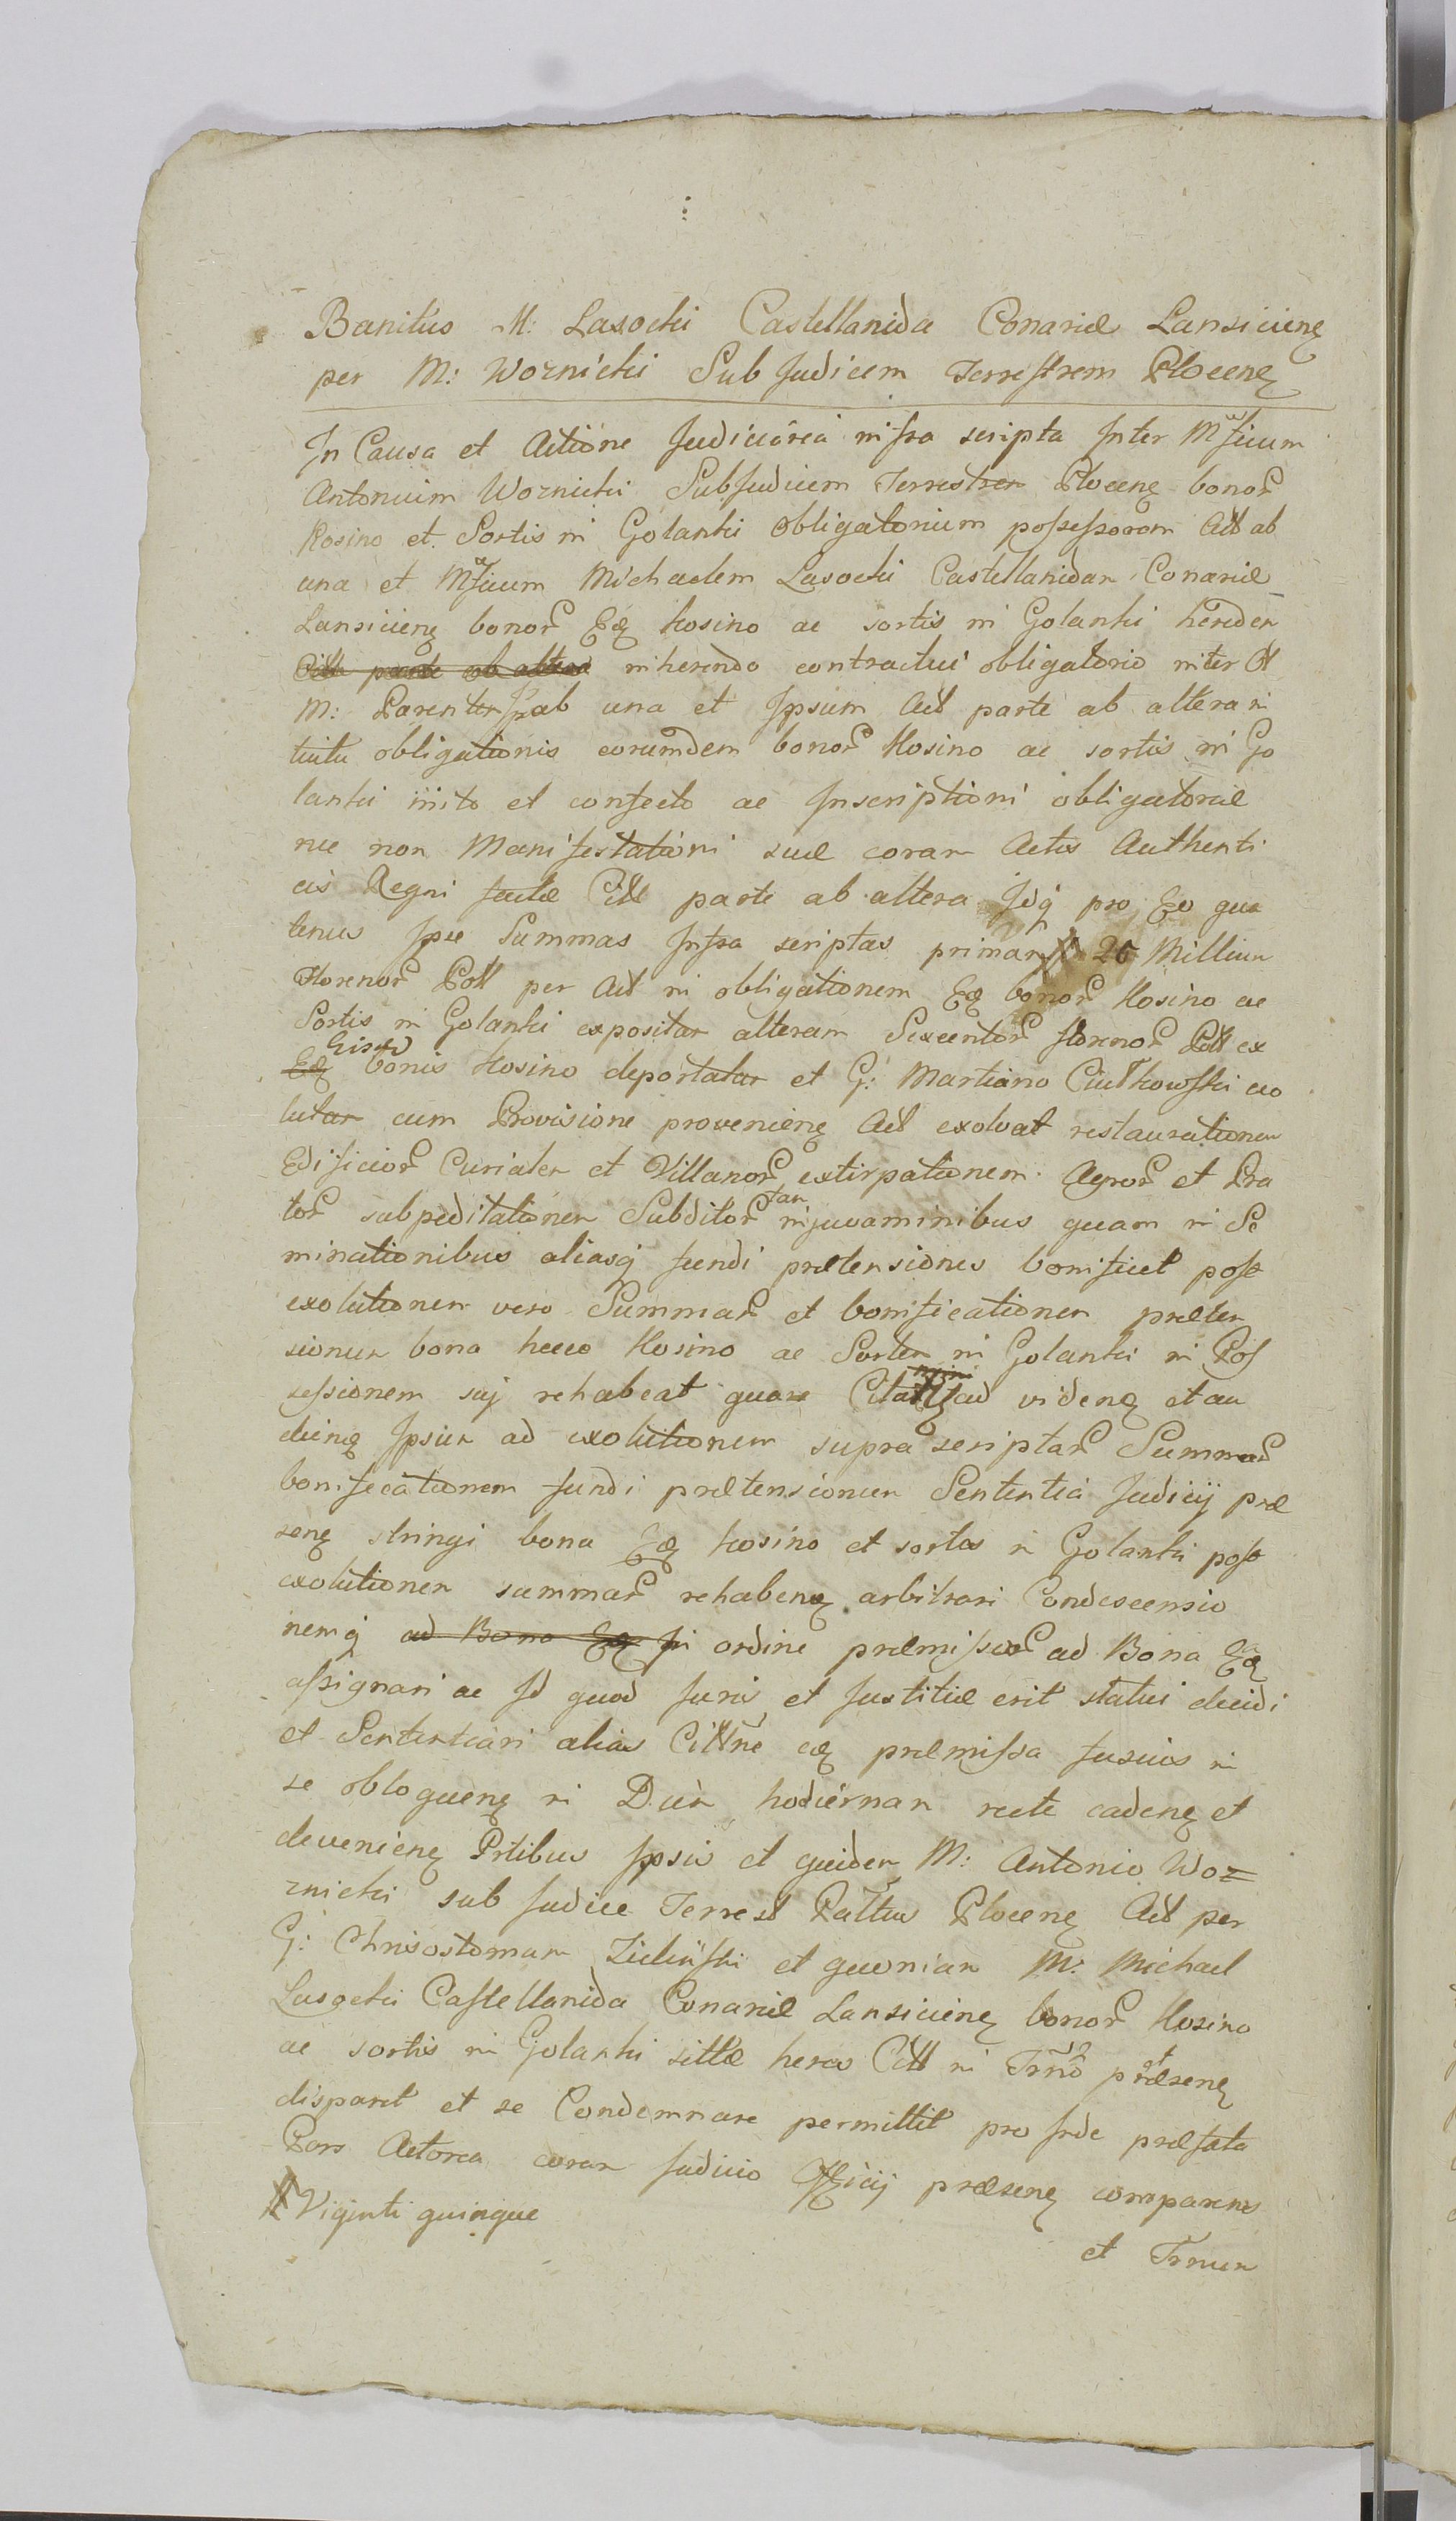 Banitio M: Lasocki Castellanida Conariæ Lansicieng
per M: Woznicki Sub Judicem Terrestrem Ploceng
In Causa et Actione Judiciaria infra scripta Inter Mfficum
Antonium Woznicki Subjudicem Terrestren Ploceng bonor
Kosino et Sortis in Golanki obligatorium possessorem Act ab
una et Mfficum Michaelem Lasocki Castellanidam Conariæ
Lansicieng bonor Eg Kosino ac sortis in Golanki heredem
Citt parte ab altera inherendo contractui obligatorio inter
M: Parentem ab una et Ipsum Act parte ab altera in
tuitu obligationis eorumdem bonor Kosino ac sortis in Go
lanki inito et confecto ac Inscriptioni obligatoriæ
nec non Manifestationi suæ coram Actis Authenti
cis Regni factæ Citt parte ab altera Idq pro Eo qua
tenus Ipse Summas Infra scriptas primam 25 Millium
Florenor Poll per Act in obligationem Eg bonor Kosino ac
Sortis in Golanki expositam alteram Sexcentor florenor Poll ex
Eisd
Eg bonis Kosino deportatam et G: Martiano Ciutkowski exo
lutam cum Provisione provenieng Act exolvat restaurationem
Edificior Curialem et Villanor extirpationem Agror et Pra
tor subpeditationem Subditor tam in juvaminibus quam in Se
minationibus aliasq fundi prætensiones bonificet post
exolutionem vero Summar et bonificationem præten
sionum bona hæcce Kosino ac Sortem in Golanki in Pos
sessionem suj rehabeat quare ad videng et au
dieng Ipsum ad exolutionem supra scriptar Summar
bonificationem fundi prætensionum Sententia Judicij præ
seng stringi bona Eg Kosino et sortes in Golanki post
exolutionem summar rehabeng arbitrari Condescensio
nemq ad Bona Eg in ordine præmissor ad Bona Eg
assignari ac Id quod Juris et Justitiæ erit statui decidi
et Sententiari alias Cittne eg præmissa fusius in
se obloqueng in Diem hodiernam recte cadeng et
devenieng Prtibus Ipsis et quidem M: Antonio Woz=
znicki sub Judice Terrest Pallatus Ploceng Act per
G: Chrisostomum Zielinski et quoniam M: Michael
Lasocki Castellanida Conariæ Lansicieng bonor Kosino
ac sortis in Golanki sittæ heres Citt in Trno præseng
disparet et se Condemnare permittit pro Inde præfata
Pars Actorea coram Judicio Officij præseng comparens
Viginti quinque
et Trnum